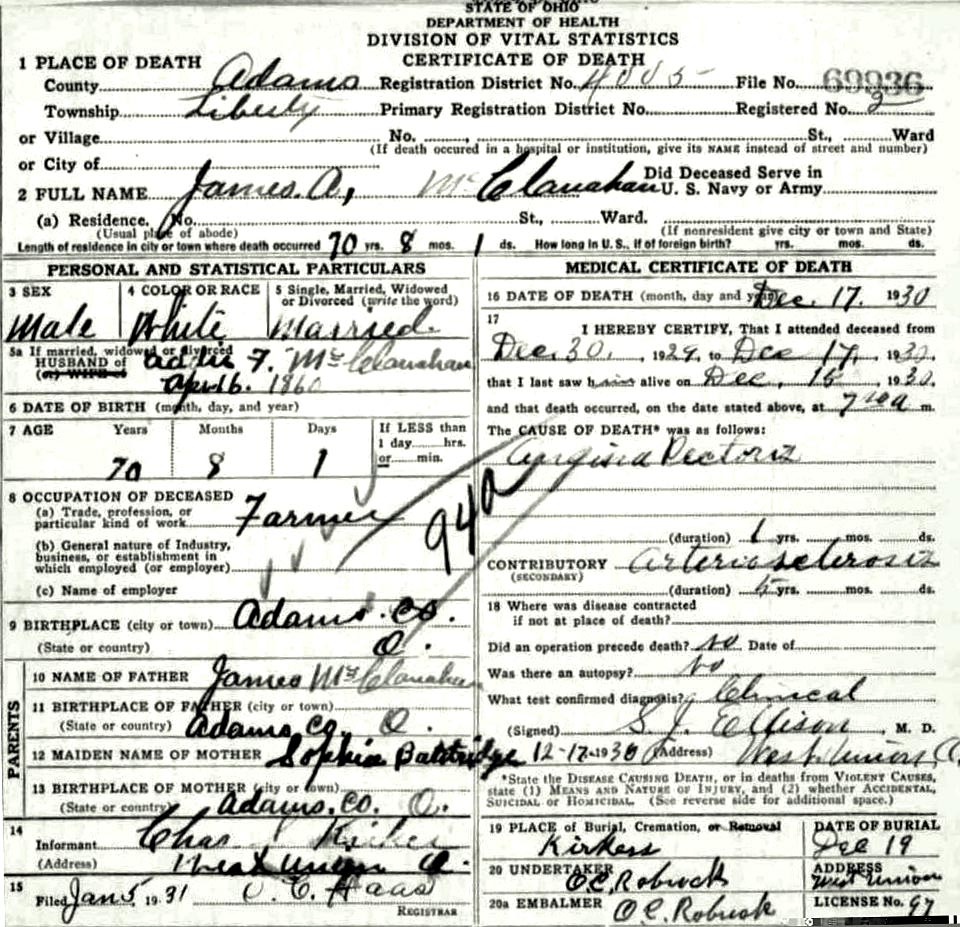 STATE OF OHIO
DEPARTMENT OF HEALTH
DIVISION OF VITAL STATISTICS
CERTIFICATE OF DEATH
1 PLACE OF DEATH
County Adams Registration District No. File No. 69936
Township Liberty Primary Registration District No. Registered No.
or Village No. St., Ward
(If death occured in a hospital or institution, give its NAME instead of street and number)
or City of
2 FULL NAME James. A, McClanahan Did Deceased Serve in U. S. Navy or Army
(a) Residence. No. St., Ward.
(Usual place of abode) (If nonresident give city or town and State)
Length of residence in city or town where death occurred 70 yrs. 8 mos. 1 ds. How long in U. S., if of foreign birth? yrs. mos. ds.
PERSONAL AND STATISTICAL PARTICULARS
3 SEX 4 COLOR OR RACE 5 Single, Married, Widowed or Divorced (write the word)
Male White Married
5a If married, widowed or divorced
HUSBAND of Addie F. McClanahan
(or) WIFE of
Apr 16. 1860
6 DATE OF BIRTH (month, day, and year)
7 AGE Years Months Days If LESS than
1 day hrs.
or min.
70 8 1
8 OCCUPATION OF DECEASED
(a) Trade, profession, or
particular kind of work Farmer
(b) General nature of Industry,
business, or establishment in
which employed (or employer)
(c) Name of employer
9 BIRTHPLACE (city or town) Adams. co.
(State or country) O.
PARENTS
10 NAME OF FATHER James McClanahan
11 BIRTHPLACE OF FATHER (city or town)
(State or country) Adams co. O.
12 MAIDEN NAME OF MOTHER Sophia
13 BIRTHPLACE OF MOTHER (city or town)
(State or country) Adams. co. O.
14
Informant Chas Kirker
(Address) West Union O.
15
Filed Jan 5, 1931 C. E. Haas
REGISTRAR
MEDICAL CERTIFICATE OF DEATH
16 DATE OF DEATH (month, day and year) Dec. 17. 1930
17
I HEREBY CERTIFY, That I attended deceased from
Dec. 30. 1929, to Dec 17, 1930.
that I last saw him alive on Dec. 15, 1930.
and that death occurred, on the date stated above, at m.
The CAUSE OF DEATH* was as follows:
Angina Pectoris
94a
(duration) 1 yrs. mos. ds.
CONTRIBUTORY Arteriosclerosis
(SECONDARY)
(duration) 5 yrs. mos. ds.
18 Where was disease contracted
if not at place of death?
Did an operation precede death? No Date of
Was there an autopsy? No
What test confirmed diagnosis? Clinical
(Signed) S. J. Ellison, M. D.
12-17-1930 (Address) West Union, O.
*State the DISEASE CAUSING DEATH, or in deaths from VIOLENT CAUSES,
state (1) MEANS AND NATURE OF INJURY, and (2) whether ACCIDENTAL,
SUICIDAL or HOMICIDAL. (See reverse side for additional space.)
19 PLACE of Burial, Cremation, or Removal DATE OF BURIAL
Kirkers Dec 19
20 UNDERTAKER ADDRESS
O.C. Robuck West Union
20a EMBALMER O C. Robuck LICENSE No. 97